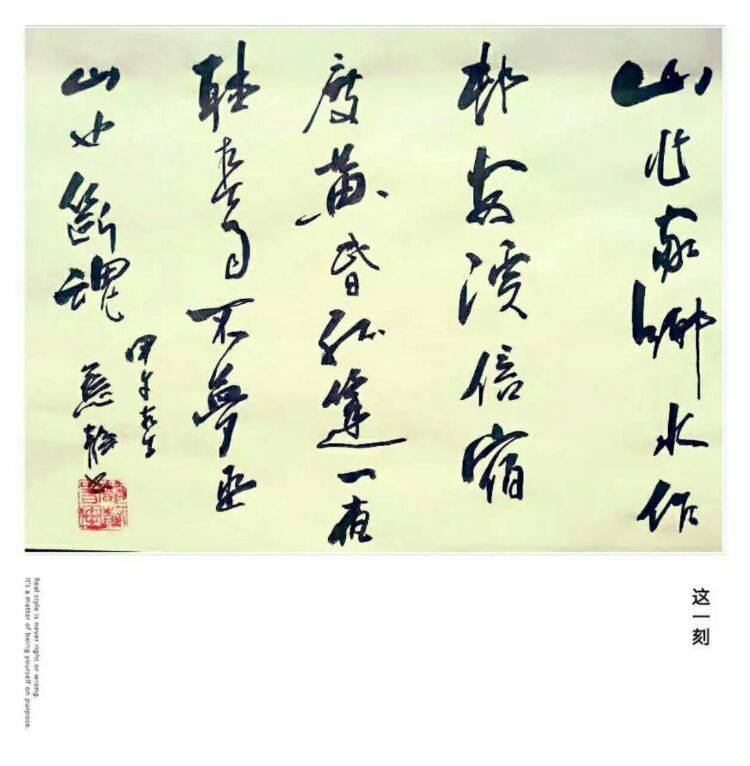 山作家鄉水作
邨安溪信宿
度黄昏孤篷一夜
聴春雨不夢巫
山也斷魂
甲午
这一刻
Real style is never right or wrong.
It's a matter of being yourself on purpose.